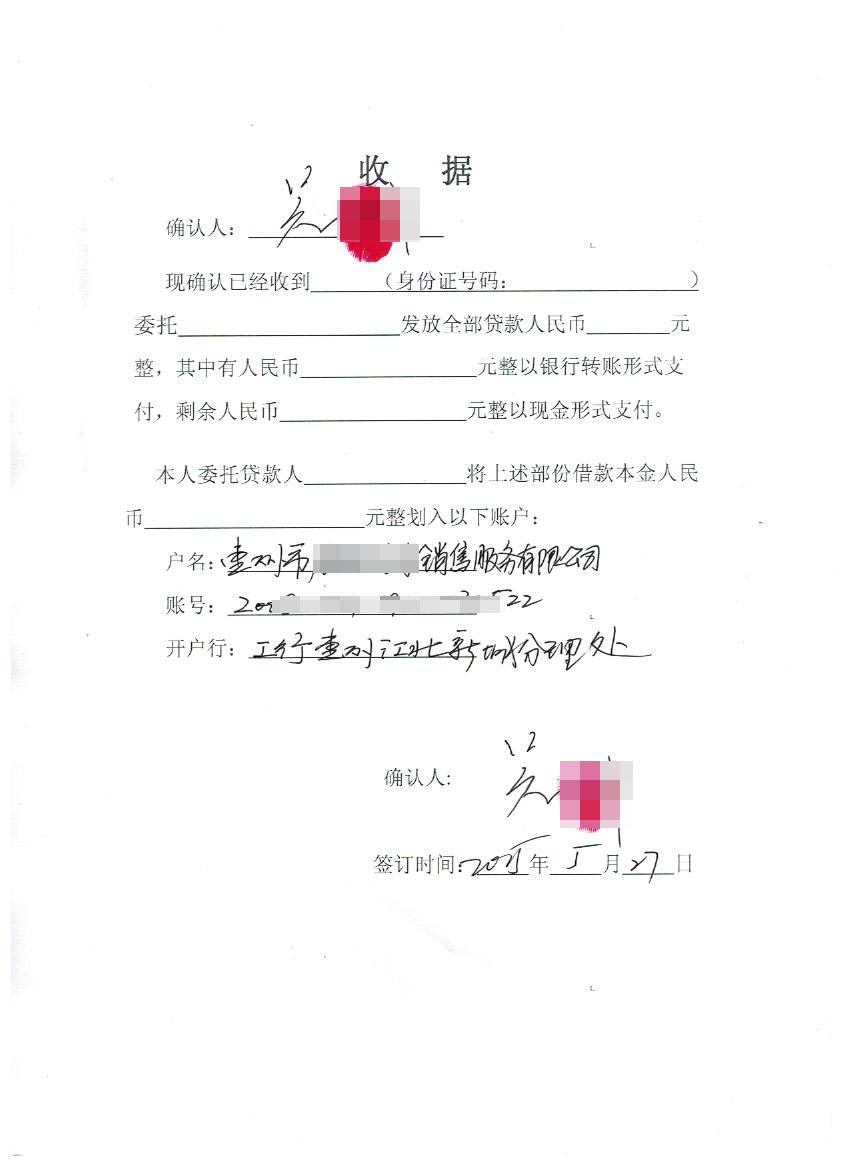 收 据
确认人：吴
现确认已经收到______（身份证号码：______）
委托______发放全部贷款人民币______元
整，其中有人民币______元整以银行转账形式支
付，剩余人民币______元整以现金形式支付。
本人委托贷款人______将上述部份借款本金人民
币______元整划入以下账户：
户名：惠州市 销售服务有限公司
账号：200 522
开户行：工行惠州江北新城分理处
确认人：吴
签订时间：2015年5月27日